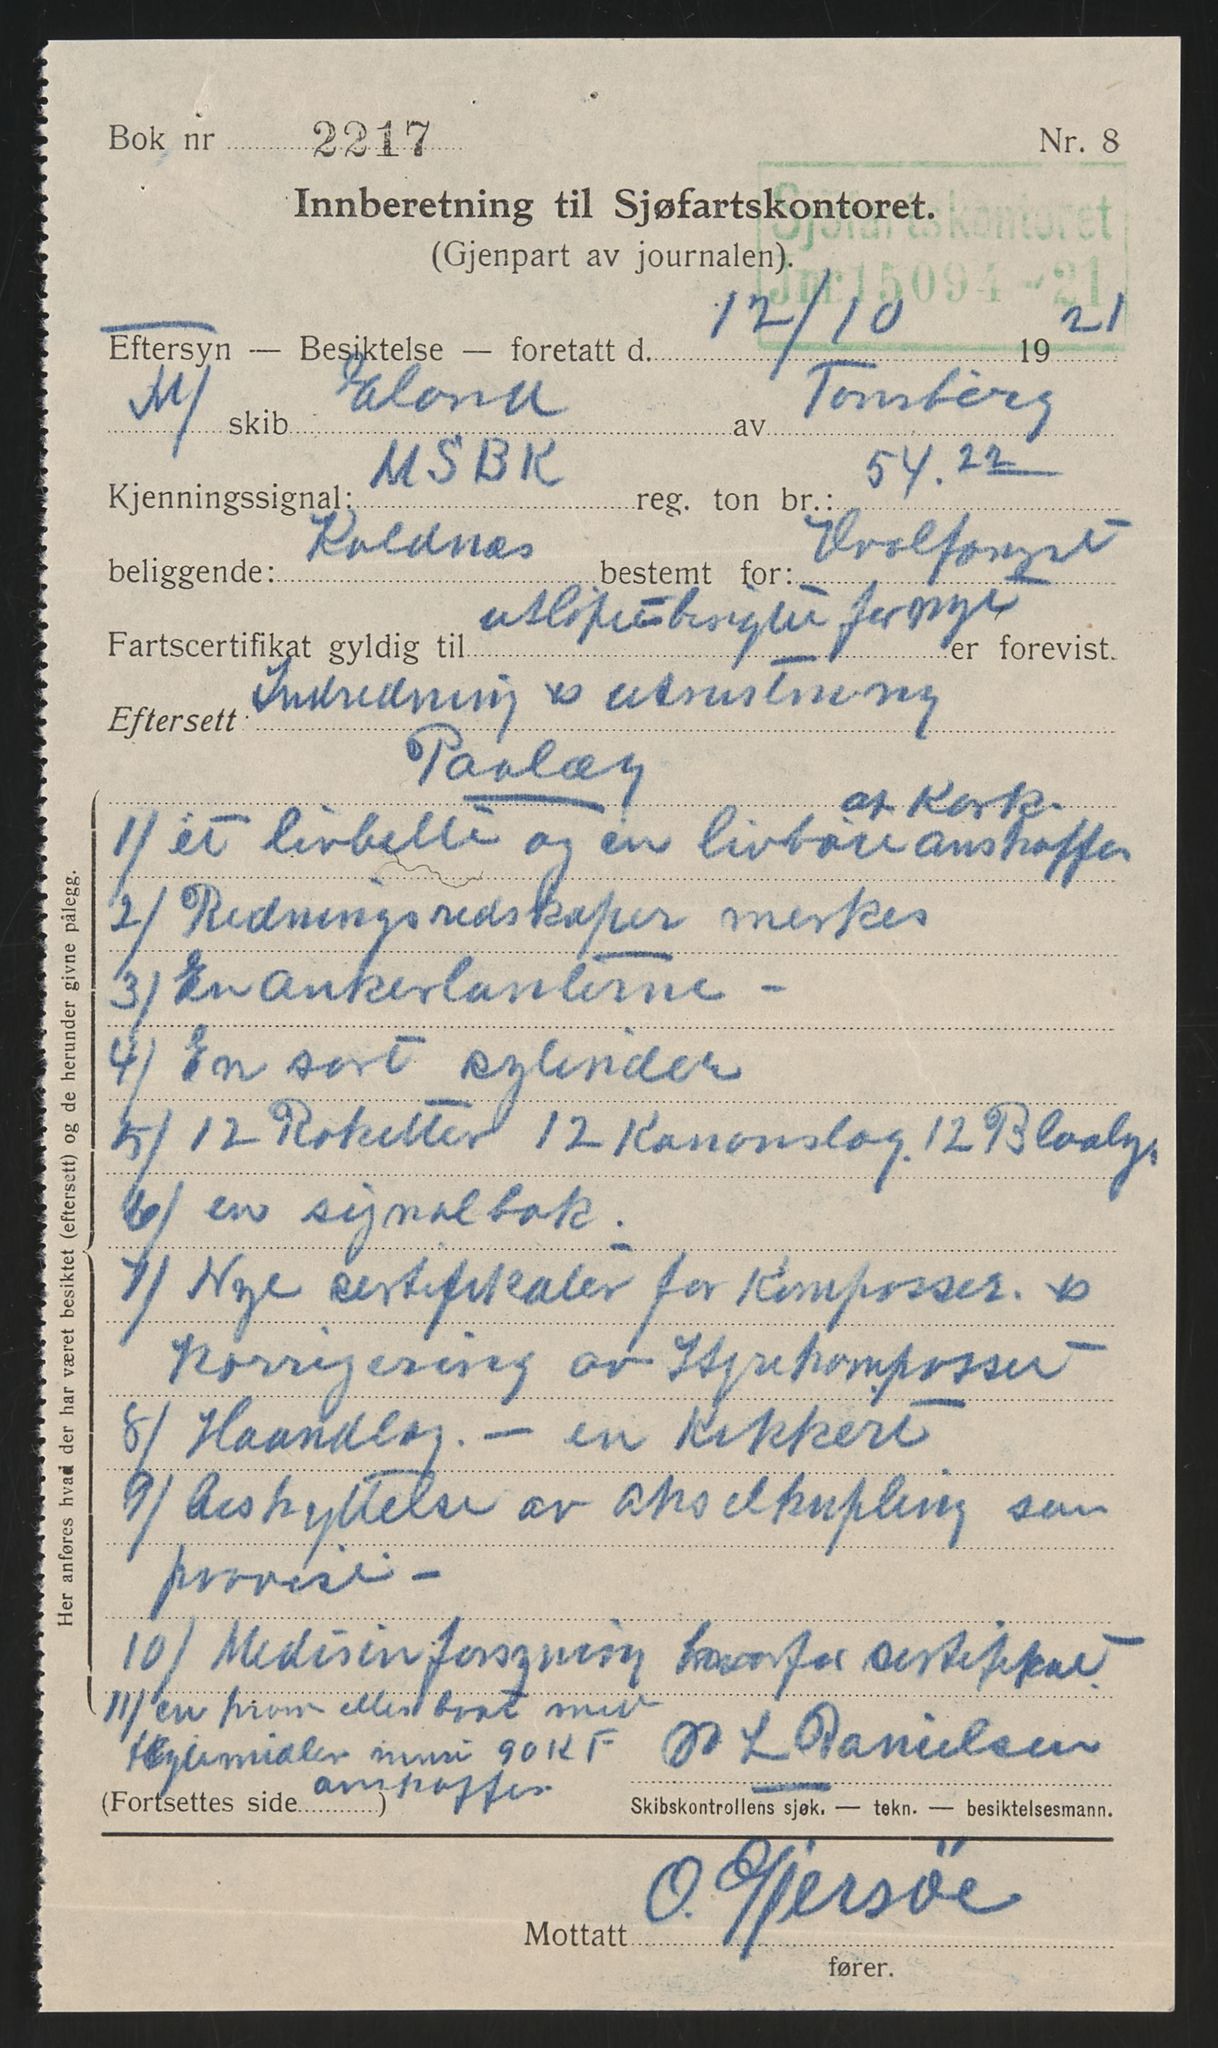 Bok nr 2217 Nr. 8
Innberetning til Sjøfartskontoret.
(Gjenpart av journalen).
Sjöfartskontoret
Jnr 15094 - 21
Eftersyn — Besiktelse — foretatt d. 12/10 1921
M/ skib Elona av Tønsberg
Kjenningssignal: MSBK reg. ton br.: 54.22
beliggende: Kaldnæs bestemt for: Hvalfangst
Fartscertifikat gyldig til utløpet besigtet for nyt er forevist.
Eftersett Indredning & utrustning
Paalæg
1/ et livbelte og en livbøie at kork anskaffes
2/ Redningsredskaper merkes
3/ En ankerlanterne -
4/ En sort sylinder
5/ 12 Raketter 12 Kanonslag. 12 Blaalys
6/ en signalbok.
7/ Nye sertifikater for Kompasser. &
korrigering av Styrekompasset
8/ Haandlog. - en Kikkert
9/ Beskyttelse av akselkupling sem
10/ Medisinforsyning hvorfor sertifikat.
11/ en pram eller baat med
90 K F
anskaffes
L Danielsen
(Fortsettes side )
Skibskontrollens sjøk. — tekn. — besiktelsesmann.
O. Gjersöe
Mottatt
fører.
Her anføres hvad der har været besiktet (eftersett) og de herunder givne pålegg.